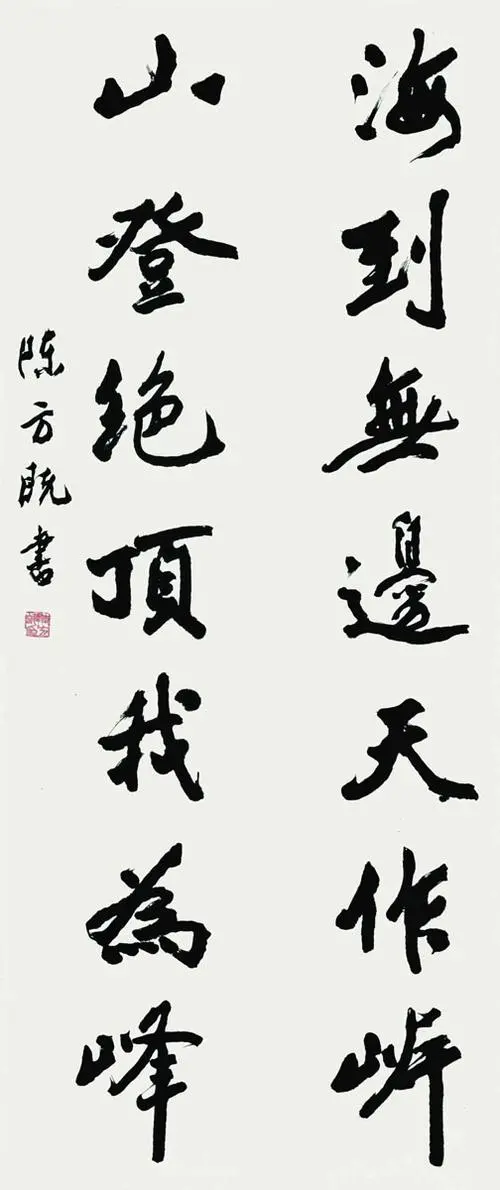 海到無邊天作岸
山登絶頂我為峰
陈方既書